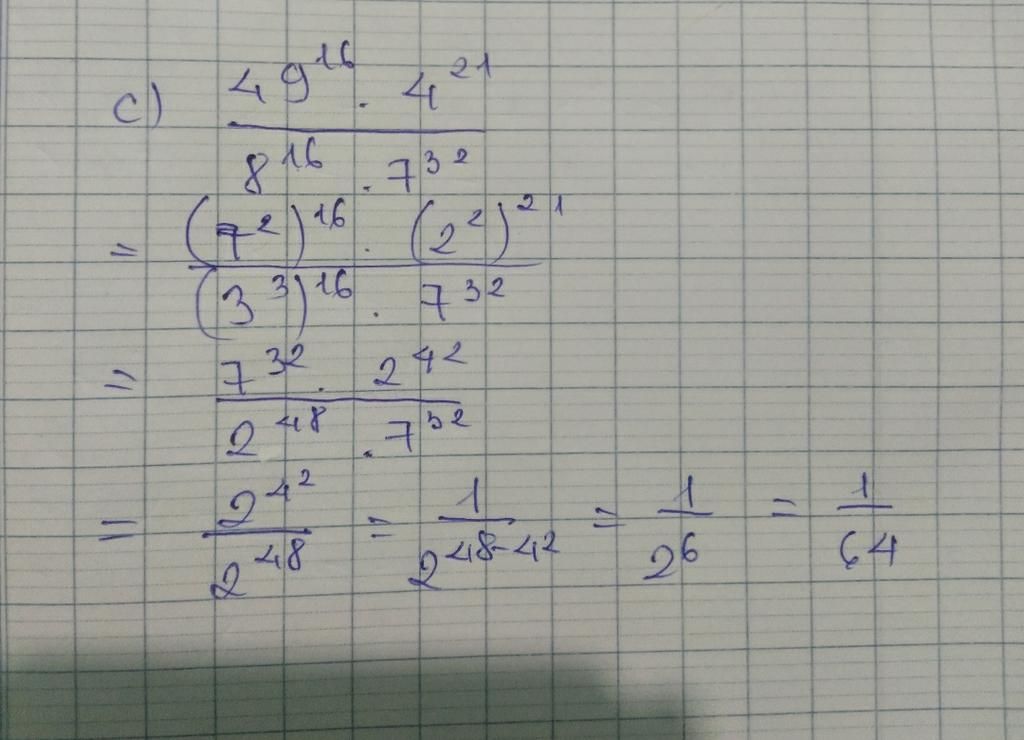 c) 49^16 . 4^21 / 8^16 . 7^32
= (7^2)^16 . (2^2)^21 / (3^3)^16 . 7^32
= 7^32 . 2^42 / 2^48 . 7^32
= 2^42 / 2^48 = 1 / 2^48-42 = 1 / 2^6 = 1 / 64